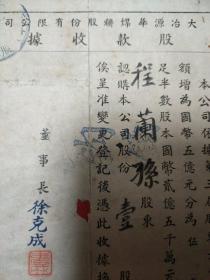 大冶源華煤鑛股份有限公司
股款收據
本公司依據第三屆股
額增為國幣五億元分為伍
足半數股本國幣貳億五千萬元
程蘭孫 股東
認購本公司股份壹
俟呈准變更登記後憑此收據換
董事長 徐克成